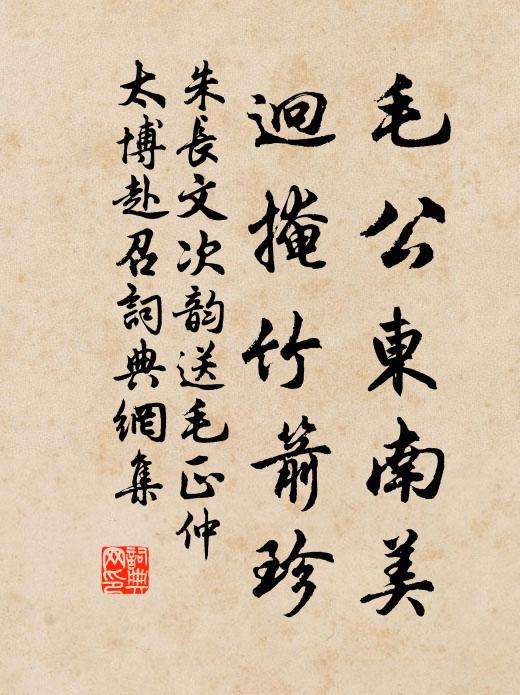 毛公東南美
迥掩竹箭珍
朱長文次韵送毛正仲
太博赴召詞典網集
詞典网印